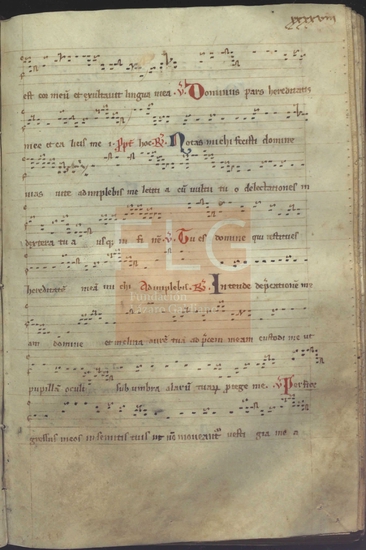 xxxxviii
est cor meū et exultavit lingua mea ℣ Dominus pars hereditatis
mee et calicis me i ppt hoc ℟ Notas michi fecisti domine
vias vite adimplebis me leticia cū vultu tuo delectationes in
dextera tua usq in finē ℣ Tu es domine qui restitues
hereditatē meā mi chi Adimplebis ℟ Intende deprecationē me
am domine et inclina aurē tuā ad precem meam custodi me ut
pupillā oculi sub umbra alarū tuarum protege me ℣ Perfice
gressus meos in semitis tuis ut nō moveant vesti gia me a
FLG
Fundación